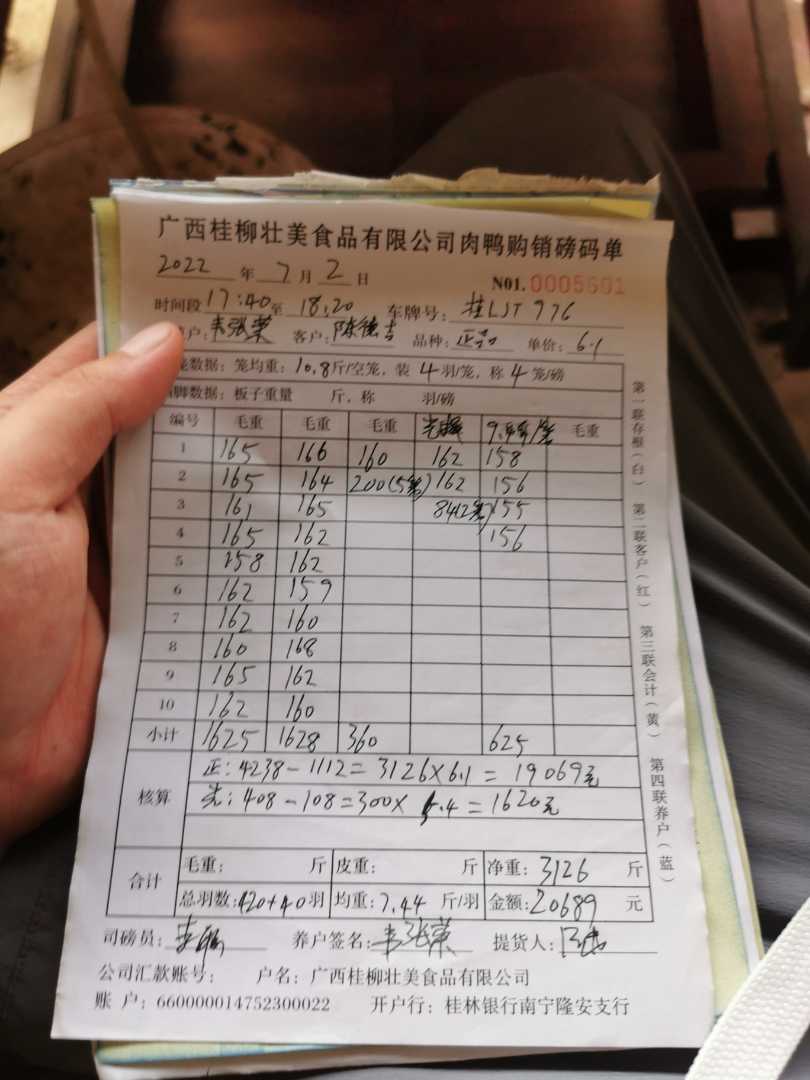 广西桂柳壮美食品有限公司肉鸭购销磅码单
2022 年 7 月 2 日 N01.0005601
时间段 17:40 至 18:20 车牌号: 桂LJT 976
户: 韦张荣 客户: 陈德吉 品种: 正品 单价: 6.1
笼数据: 笼均重: 10.8斤/空笼, 装 4 羽/笼, 称 4 笼/磅
脚数据: 板子重量 斤, 称 羽/磅
编号 毛重 毛重 毛重 毛重
1 165 166 160 162 158
2 165 164 200(5笼) 162 156
3 161 165 84(2笼) 155
4 165 162 156
5 158 162
6 162 159
7 162 160
8 160 168
9 165 162
10 162 160
小计 1625 1628 360 625
核算
正: 4238-1112=3126×6.1=19069元
光: 408-108=300×5.4=1620元
合计
毛重: 斤 皮重: 斤 净重: 3126 斤
总羽数: 420+40 羽 均重: 7.44 斤/羽 金额: 20689 元
司磅员: 养户签名: 韦张荣 提货人:
公司汇款账号: 户名: 广西桂柳壮美食品有限公司
账 户: 660000014752300022 开户行: 桂林银行南宁隆安支行
第一联存根(白)
第二联客户(红)
第三联会计(黄)
第四联养户(蓝)